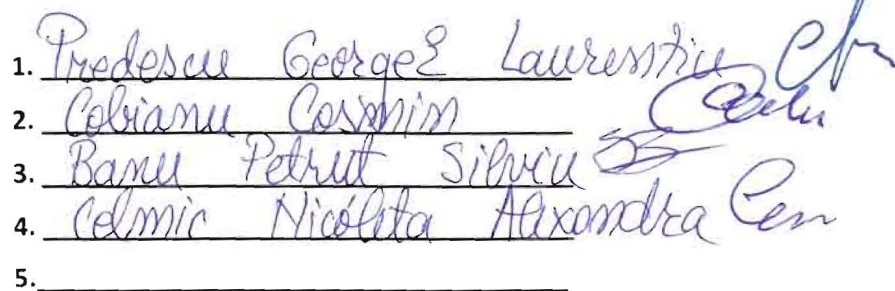 1. Predescu George Laurentiu
2. Cobianu Cosmin
3. Banu Petrut Silviu
4. Colmic Nicoleta Alexandra
5.